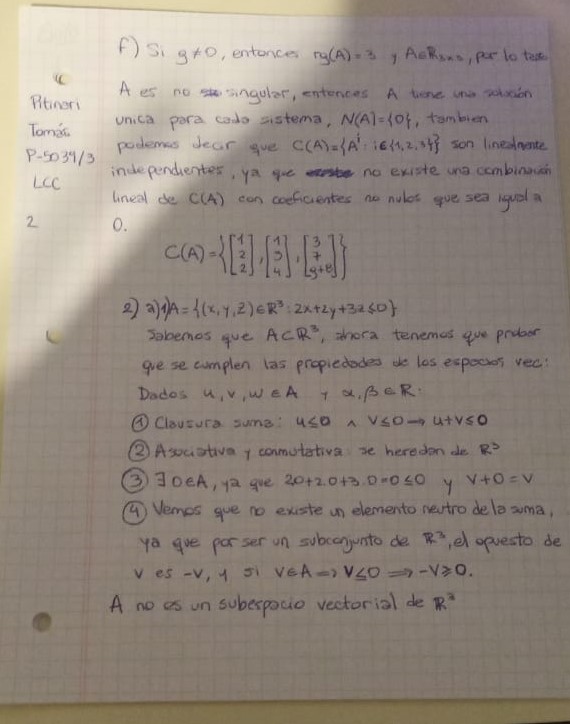 f) Si g≠0, entonces rg(A)=3 y A∈R3x3, por lo tanto
A es no singular, entonces A tiene una solución
unica para cada sistema, N(A)={0}, tambien
podemos decir que C(A)={Aⁱ: i∈{1,2,3}} son linealmente
independientes, ya que no existe una combinación
lineal de C(A) con coeficientes no nulos que sea igual a
0.
Pitinari
Tomás
P-5039/3
LCC
2
C(A)={[1 2 2], [1 3 4], [3 7 g+8]}
2) a)1)A={(x,y,z)∈R³: 2x+2y+3z≤0}
Sabemos que A⊂R³, ahora tenemos que probar
que se cumplen las propiedades de los espacios vec:
Dados u,v,w∈A y α,β∈R:
① Clausura suma: u≤0 ∧ v≤0→u+v≤0
② Asociativa y conmutativa: se heredan de R³
③ ∃0∈A, ya que 2.0+2.0+3.0=0≤0 y v+0=v
④ Vemos que no existe un elemento neutro de la suma,
ya que por ser un subconjunto de R³, el opuesto de
v es -v, y si v∈A⇒v≤0⇒-v≥0.
A no es un subespacio vectorial de R³